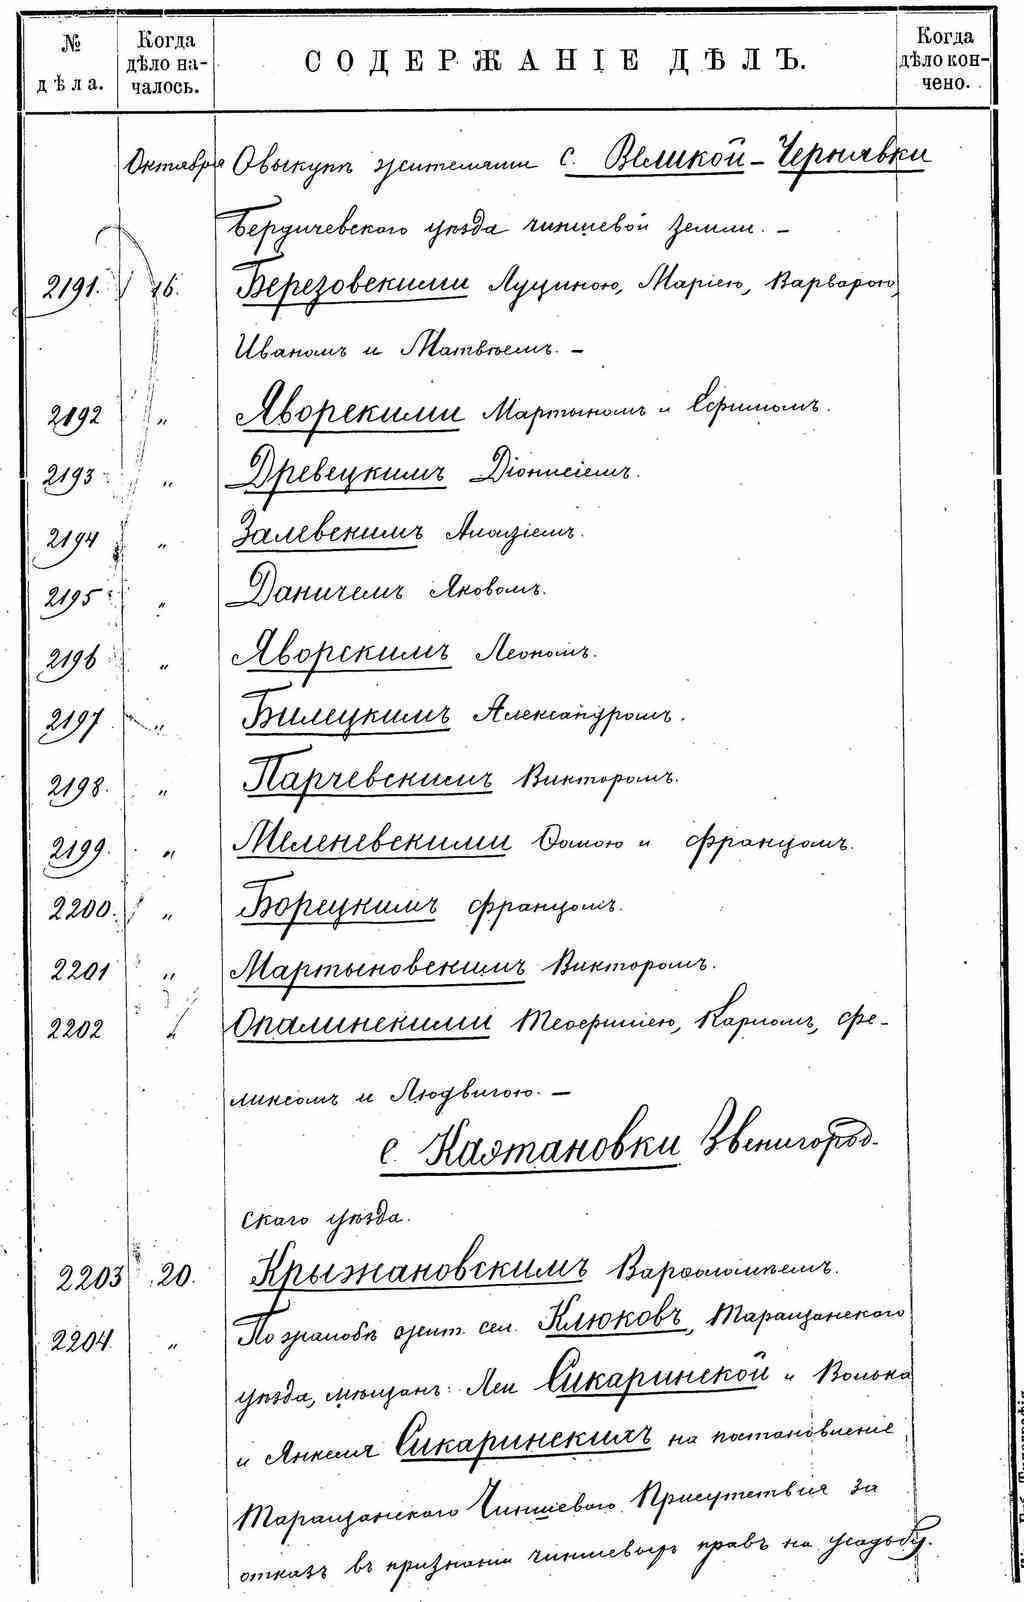 № дѣла. Когда дѣло началось. СОДЕРЖАНІЕ ДѢЛЪ. Когда дѣло кончено.
Октября О выкупѣ жителями с. Великой-Чернявки
Бердичевского уѣзда чиншевой земли. -
2191. 16. Березовскими Луциною, Маріею, Варварою,
Иваномъ и Матвѣемъ. -
2192 " Яворскими Мартыномъ и Ефимомъ.
2193 " Древецкимъ Діонисіемъ.
2194 " Залевскимъ Алоизіемъ.
2195 " Даничемъ Яковомъ.
2196 " Яворскимъ Леономъ.
2197 " Билецкимъ Александромъ.
2198. " Парчевскимъ Викторомъ.
2199. " Меленевскими Ѳомою и Францомъ.
2200. " Борецкимъ Францомъ.
2201 " Мартыновскимъ Викторомъ.
2202 " Опалинскими Карломъ, Фе-
ликсомъ и Людвигою. -
с. Каэтановки Звенигород-
скаго уѣзда.
2203 20. Крыжановскимъ Варѳоломѣемъ.
2204 " По жалобѣ жит. сел. Клюковъ, Таращанскаго
уѣзда, мѣщанъ: Леи Сикаринской и Волька
и Янкеля Сикаринскихъ на постановленіе
Таращанскаго Чиншеваго Присутствія за
отказъ въ признаніи чиншевыхъ правъ на усадьбу.